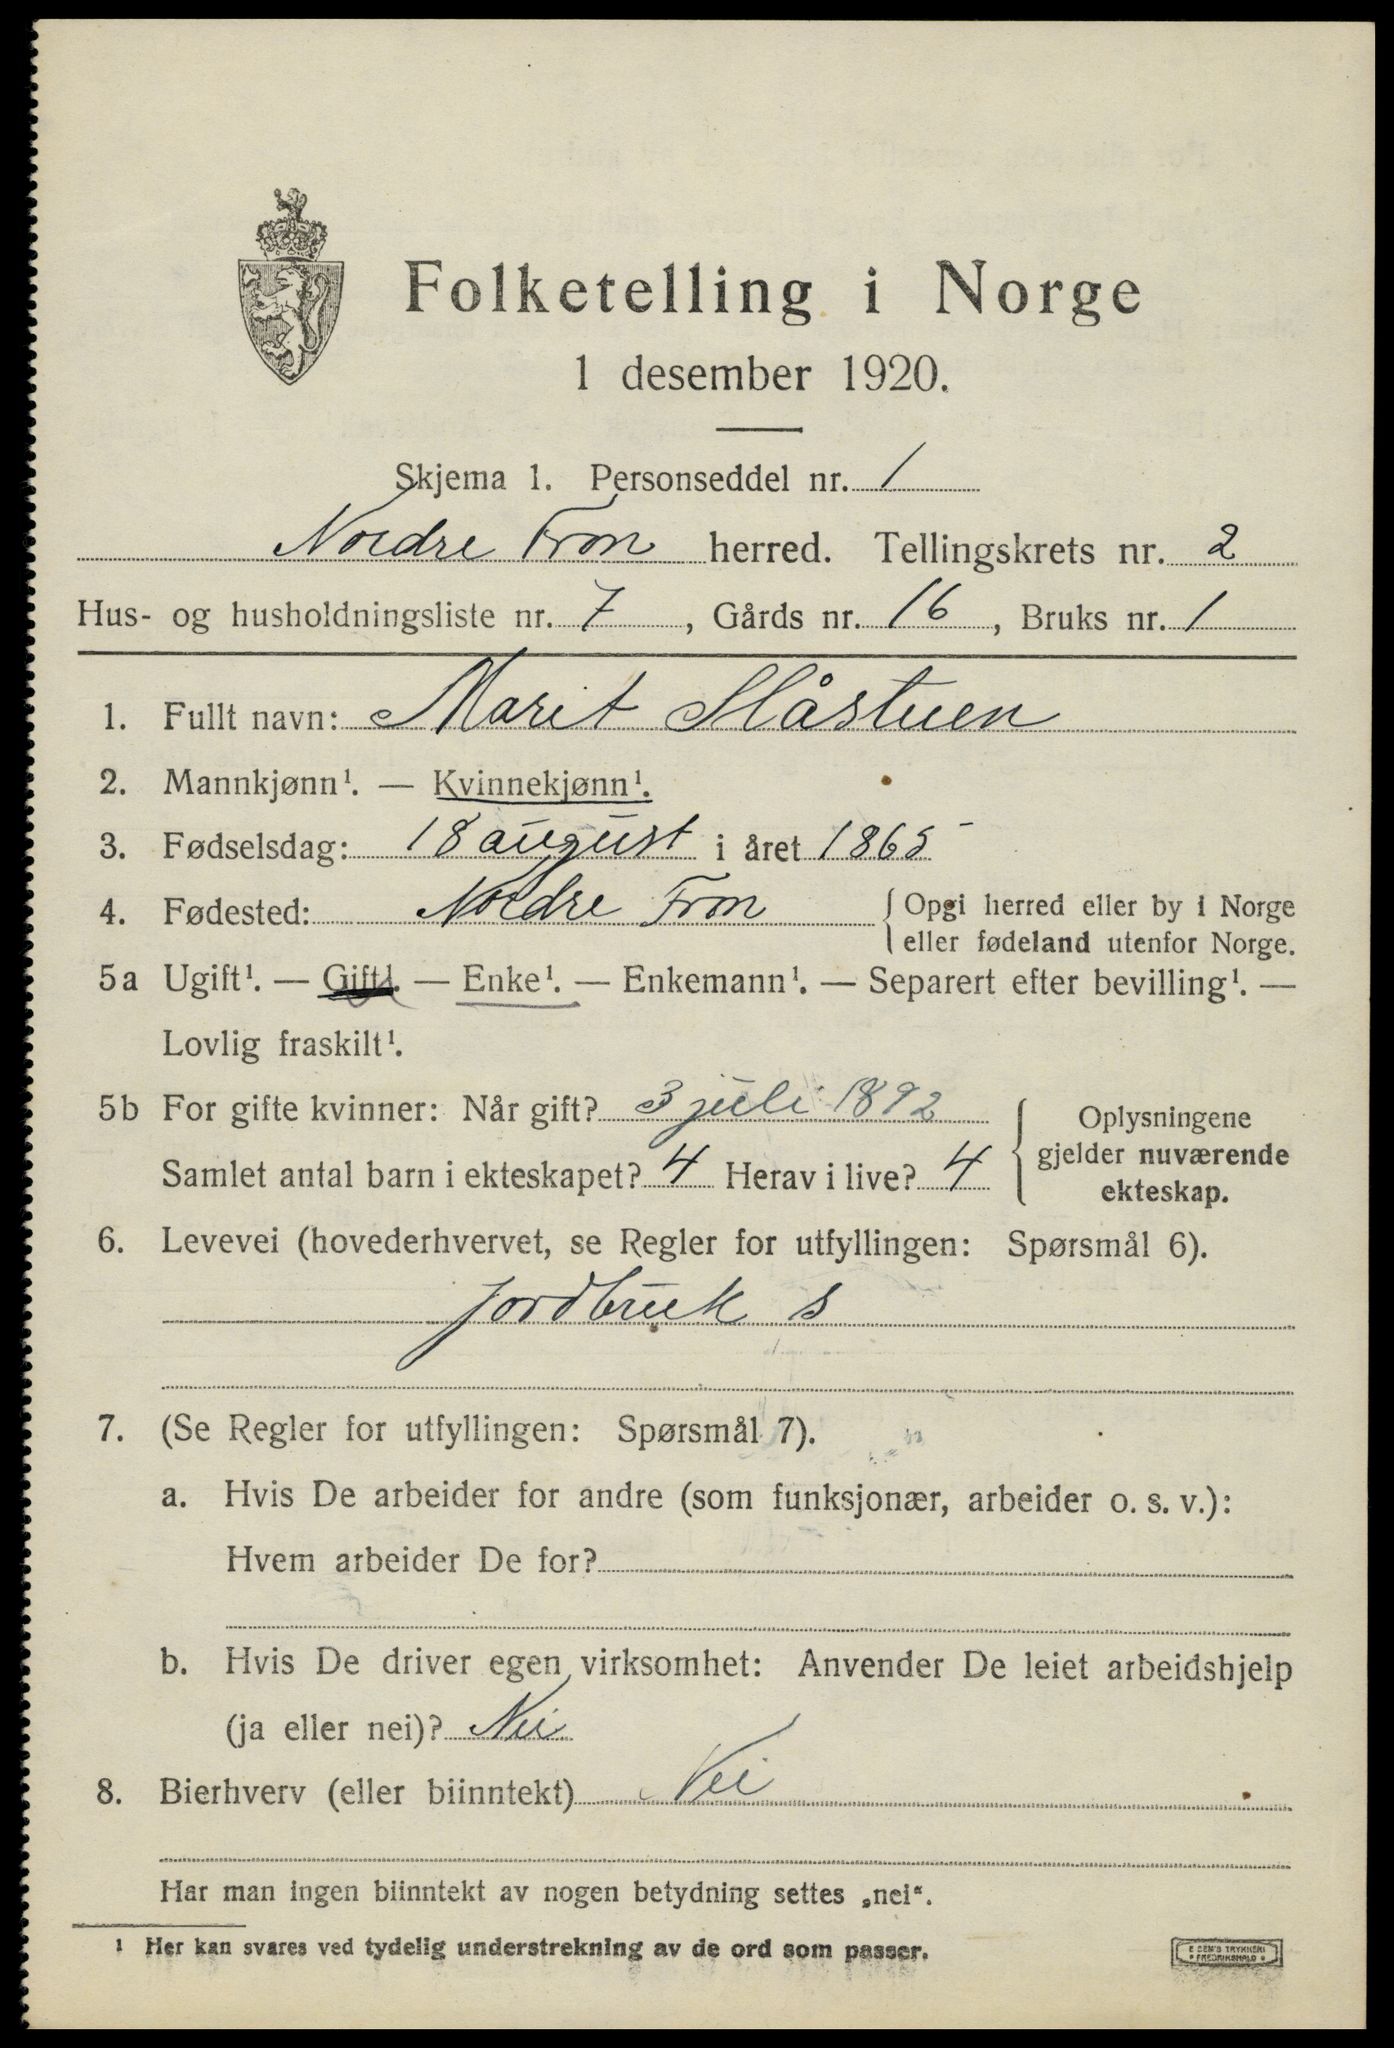 Folketelling i Norge
1 desember 1920.
Skjema 1. Personseddel nr. 1
Nordre Fron herred. Tellingskrets nr. 2
Hus- og husholdningsliste nr. 7, Gårds nr. 16, Bruks nr. 1
1. Fullt navn: Marit Slåstuen
2. Mannkjønn¹. — Kvinnekjønn¹.
3. Fødselsdag: 18 august i året 1865
4. Fødested: Nordre Fron { Opgi herred eller by i Norge
eller fødeland utenfor Norge.
5a Ugift¹. — Gift¹. — Enke¹. — Enkemann¹. — Separert efter bevilling¹. —
Lovlig fraskilt¹.
5b For gifte kvinner: Når gift? 3 juli 1892
Samlet antal barn i ekteskapet? 4 Herav i live? 4
{ Oplysningene
gjelder nuværende
ekteskap.
6. Levevei (hovederhvervet, se Regler for utfyllingen: Spørsmål 6).
Jordbruk s
7. (Se Regler for utfyllingen: Spørsmål 7).
a. Hvis De arbeider for andre (som funksjonær, arbeider o. s. v.):
Hvem arbeider De for?
b. Hvis De driver egen virksomhet: Anvender De leiet arbeidshjelp
(ja eller nei)? Nei
8. Bierhverv (eller biinntekt) Nei
Har man ingen biinntekt av nogen betydning settes „nei“.
¹ Her kan svares ved tydelig understrekning av de ord som passer.